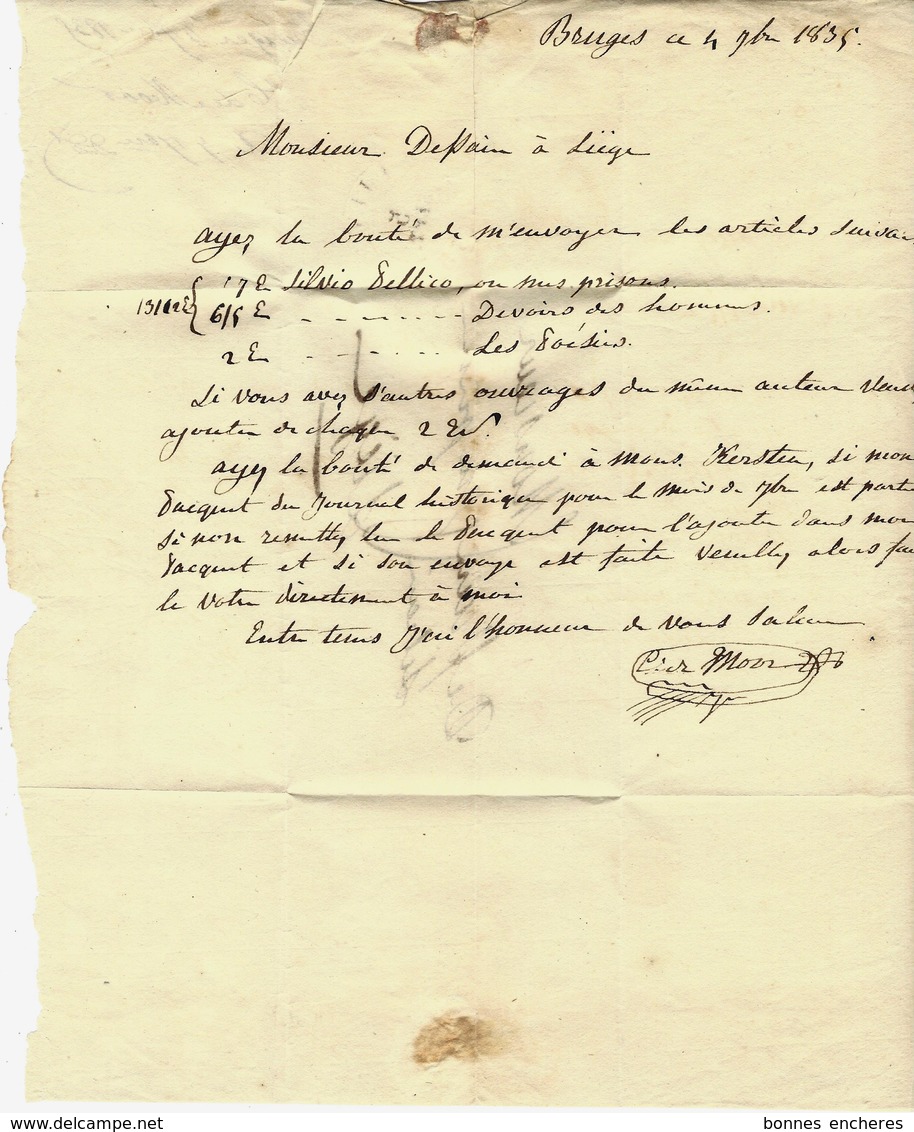 Bruges ce 4 7bre 1835.
Monsieur Dessain à Liège
ayez la bonté de m'envoyer les articles suivan
13/12 E { 7 E Silvio Pellico, ou mes prisons.
6/5 E - - - - - - - - Devoirs des hommes.
2 E - - - - - - - - Les Poésies.
Si vous avez d'autres ouvrages du même auteur veuil
ajouter de chaque 2 Ex.
ayez la bonté de demandé à Mons. Kersten, si mon
Pacquet du Journal historique pour le mois de 7bre est parti
si non remettez lui le Pacquet pour l'ajouter dans mon
Pacquet et si son envoye est faite veuillez alors fai
le votre directement à moi
Entre tems J'ai l'honneur de vous saluer
De Moor
bonnes encheres